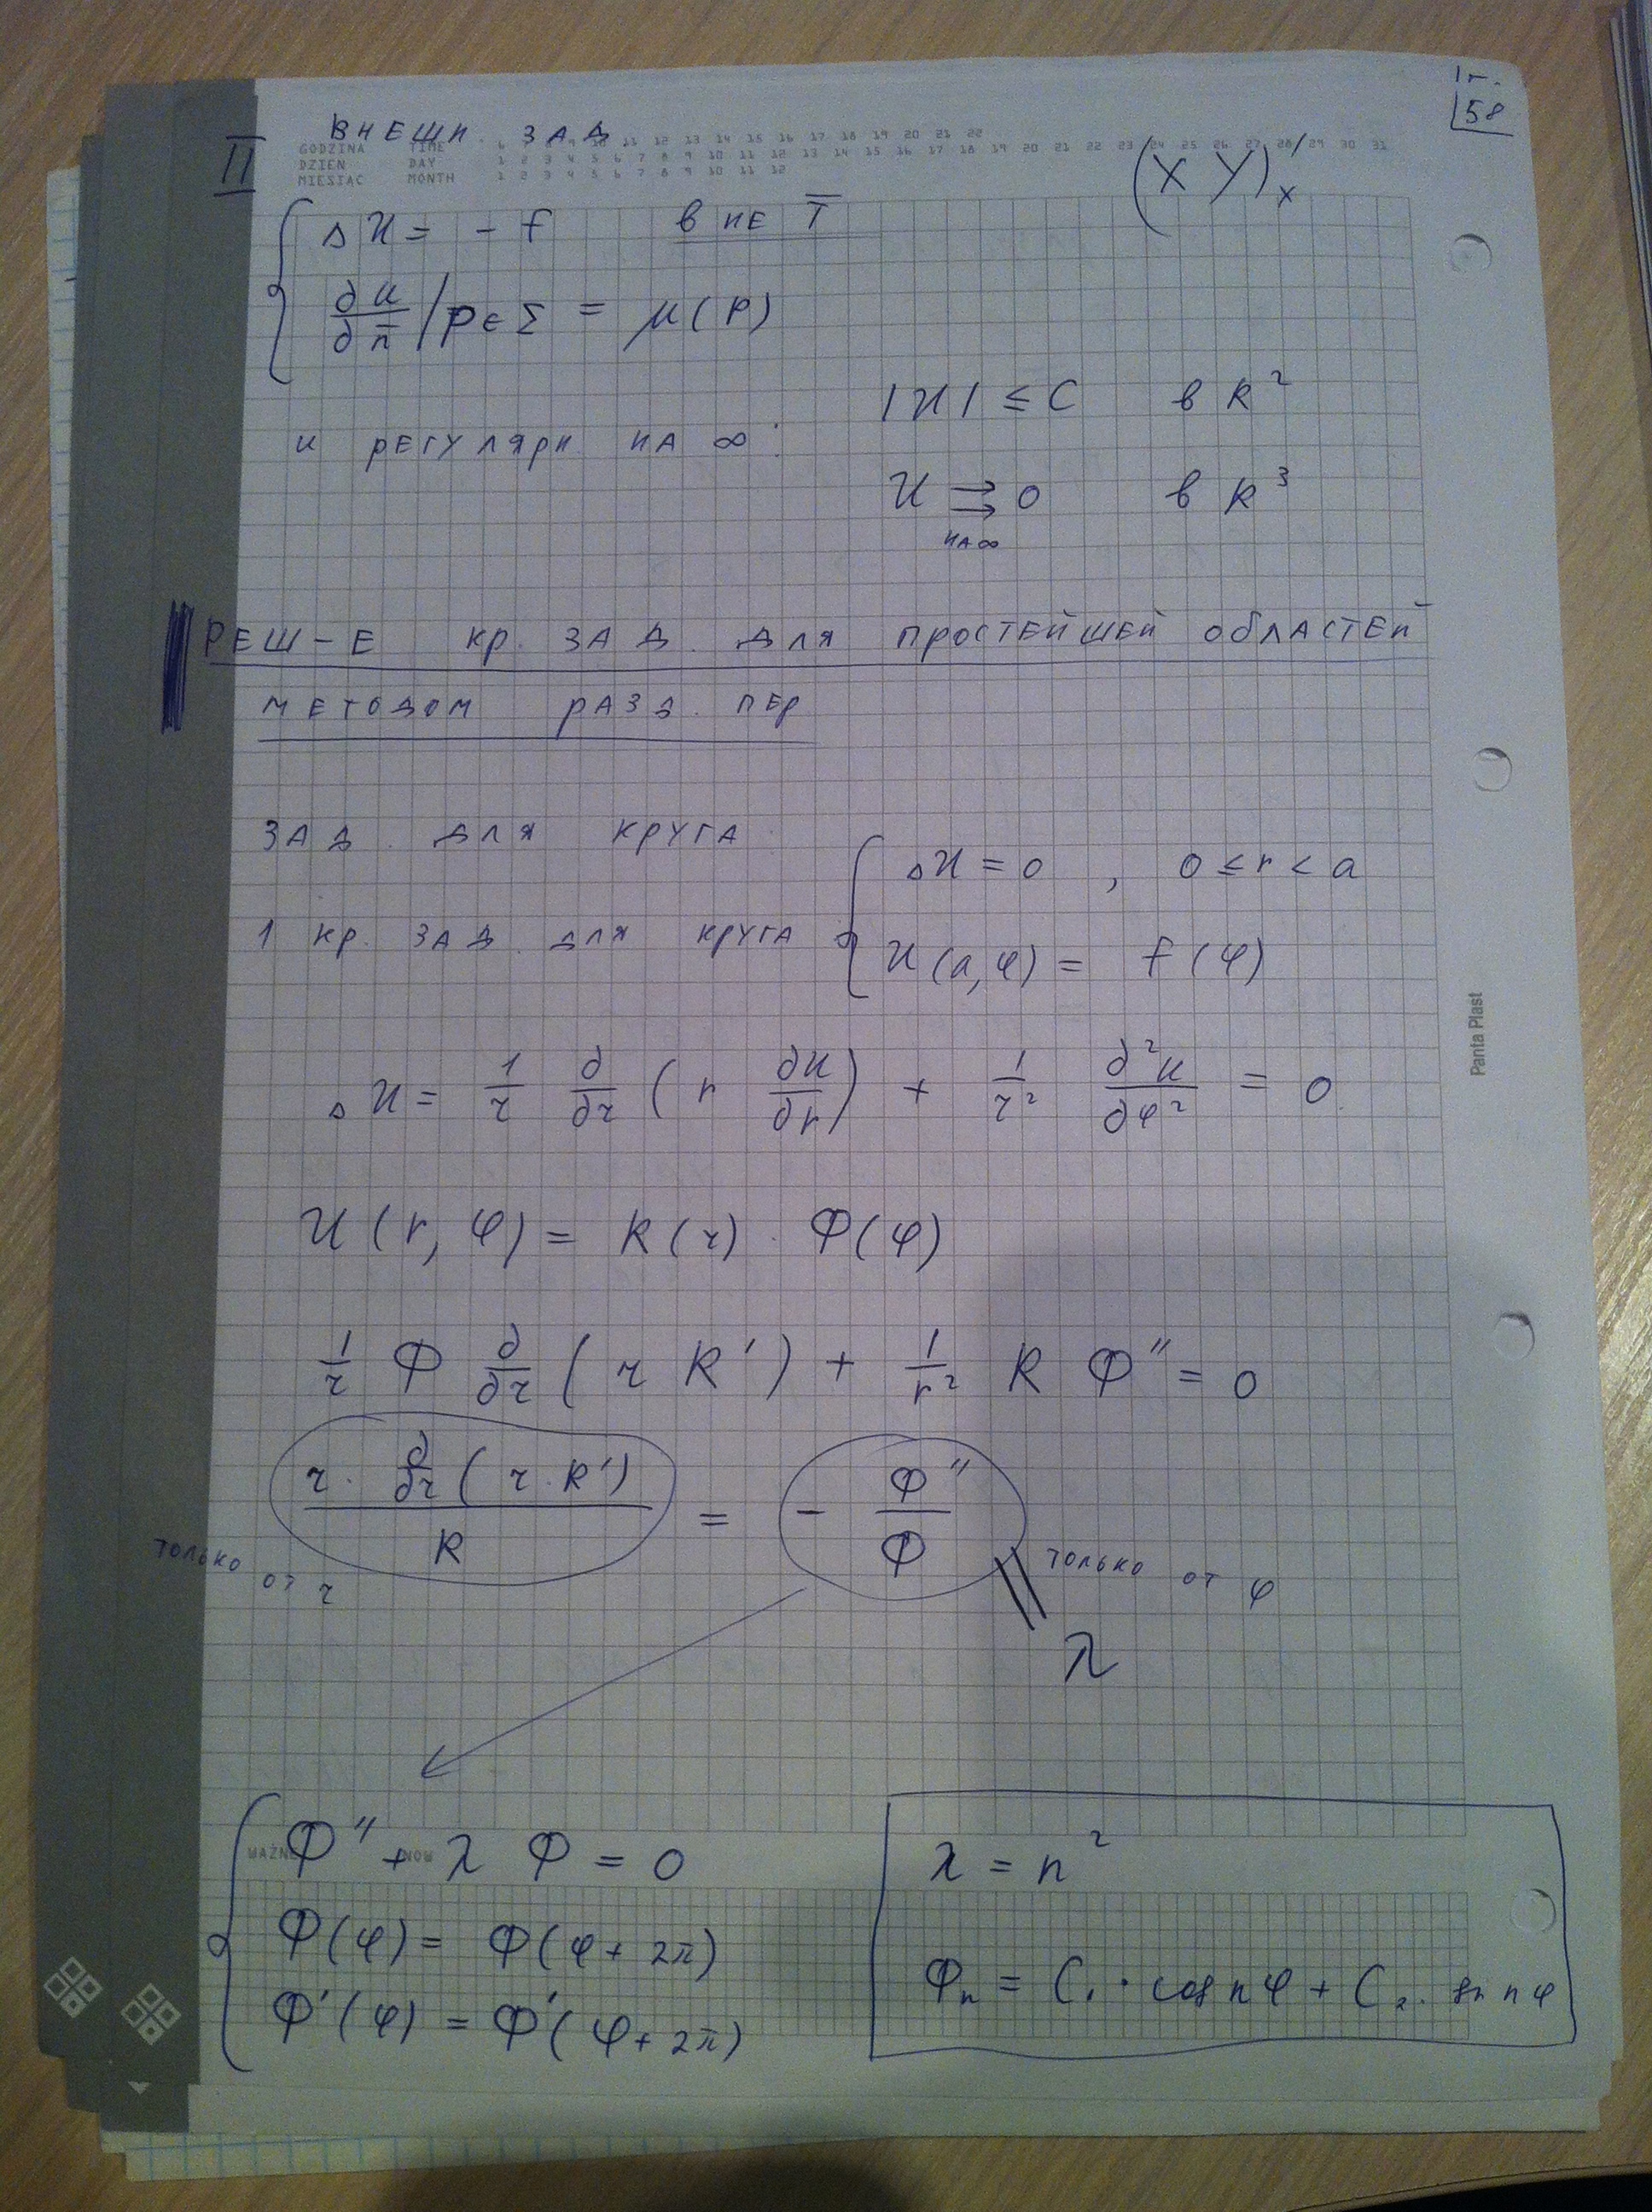 1г.
58
ВНЕШН. ЗАД
GODZINA TIME 6 7 8 9 10 11 12 13 14 15 16 17 18 19 20 21 22
DZIEŃ DAY 1 2 3 4 5 6 7 8 9 10 11 12 13 14 15 16 17 18 19 20 21 22 23 24 25 26 27 28 29 30 31
MIESIĄC MONTH 1 2 3 4 5 6 7 8 9 10 11 12
II
(X Y)'ₓ
Δu = - f вне T̅
∂u/∂n̅ /p∈Σ = μ(p)
|u| ≤ C в R²
и регулярн на ∞:
u ⇉ 0 в R³
на ∞
РЕШ-Е КР. ЗАД. ДЛЯ ПРОСТЕЙШЕЙ ОБЛАСТЕЙ
МЕТОДОМ РАЗД. ПЕР
ЗАД. ДЛЯ КРУГА
Δu = 0 , 0 ≤ r < a
1 КР. ЗАД. ДЛЯ КРУГА
u(a,φ) = f(φ)
Δu = 1/r ∂/∂r (r ∂u/∂r) + 1/r² ∂²u/∂φ² = 0
u(r,φ) = R(r) · Φ(φ)
1/r Φ ∂/∂r (r R') + 1/r² R Φ'' = 0
r · ∂/∂r (r · R') / R = - Φ''/Φ
только от r
только от φ
|| λ
Φ'' + λ Φ = 0
Φ(φ) = Φ(φ + 2π)
Φ'(φ) = Φ'(φ + 2π)
λ = n²
Φₙ = C₁ · cos nφ + C₂ · sin nφ
WAŻNE NOW
Panta Plast